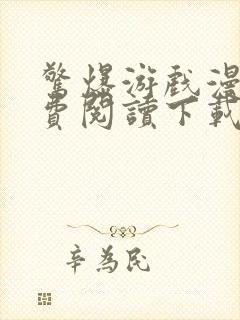 驚爆游戲漫
費閱讀下載
辛為民